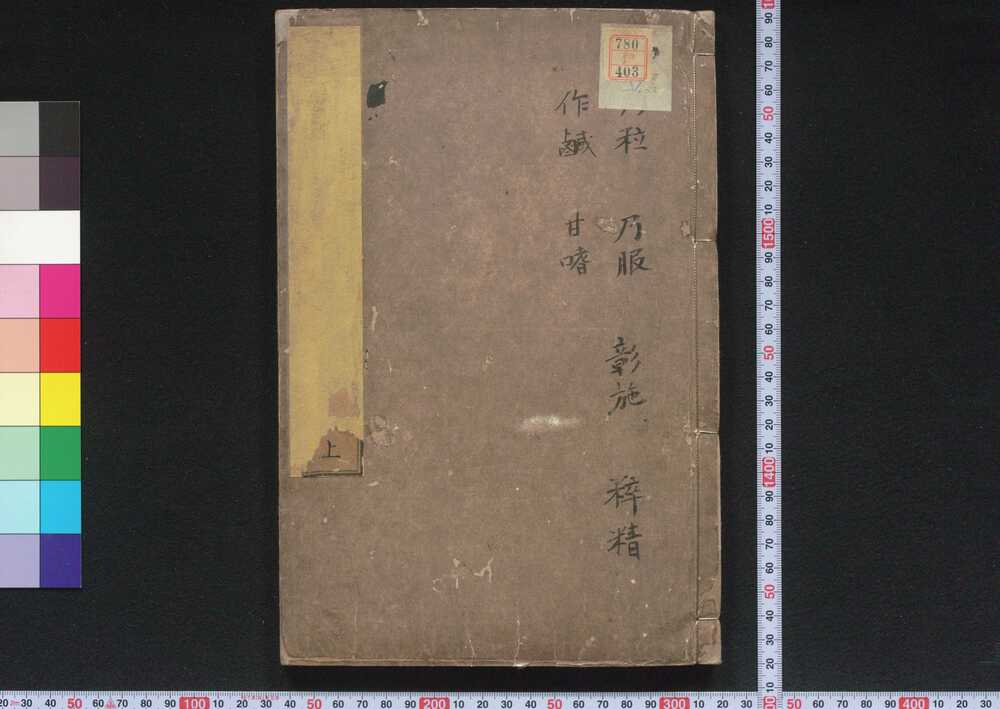 780
403
粒 乃服 彰施 粹精
作鹹 甘嗜
上